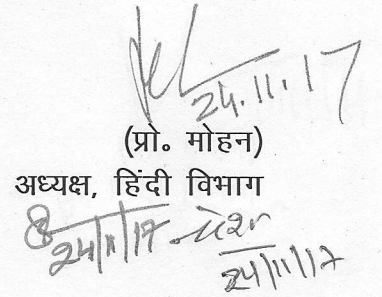 24.11.17
(प्रो॰ मोहन)
अध्यक्ष, हिंदी विभाग
24/11/17
24/11/17